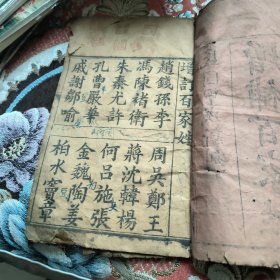 增訂百家姓
趙錢孫李 周吳鄭王
馮陳褚衛 蔣沈韓楊
朱秦尤許 何呂施張
孔曹嚴華 金魏陶姜
戚謝鄒喻 柏水竇章